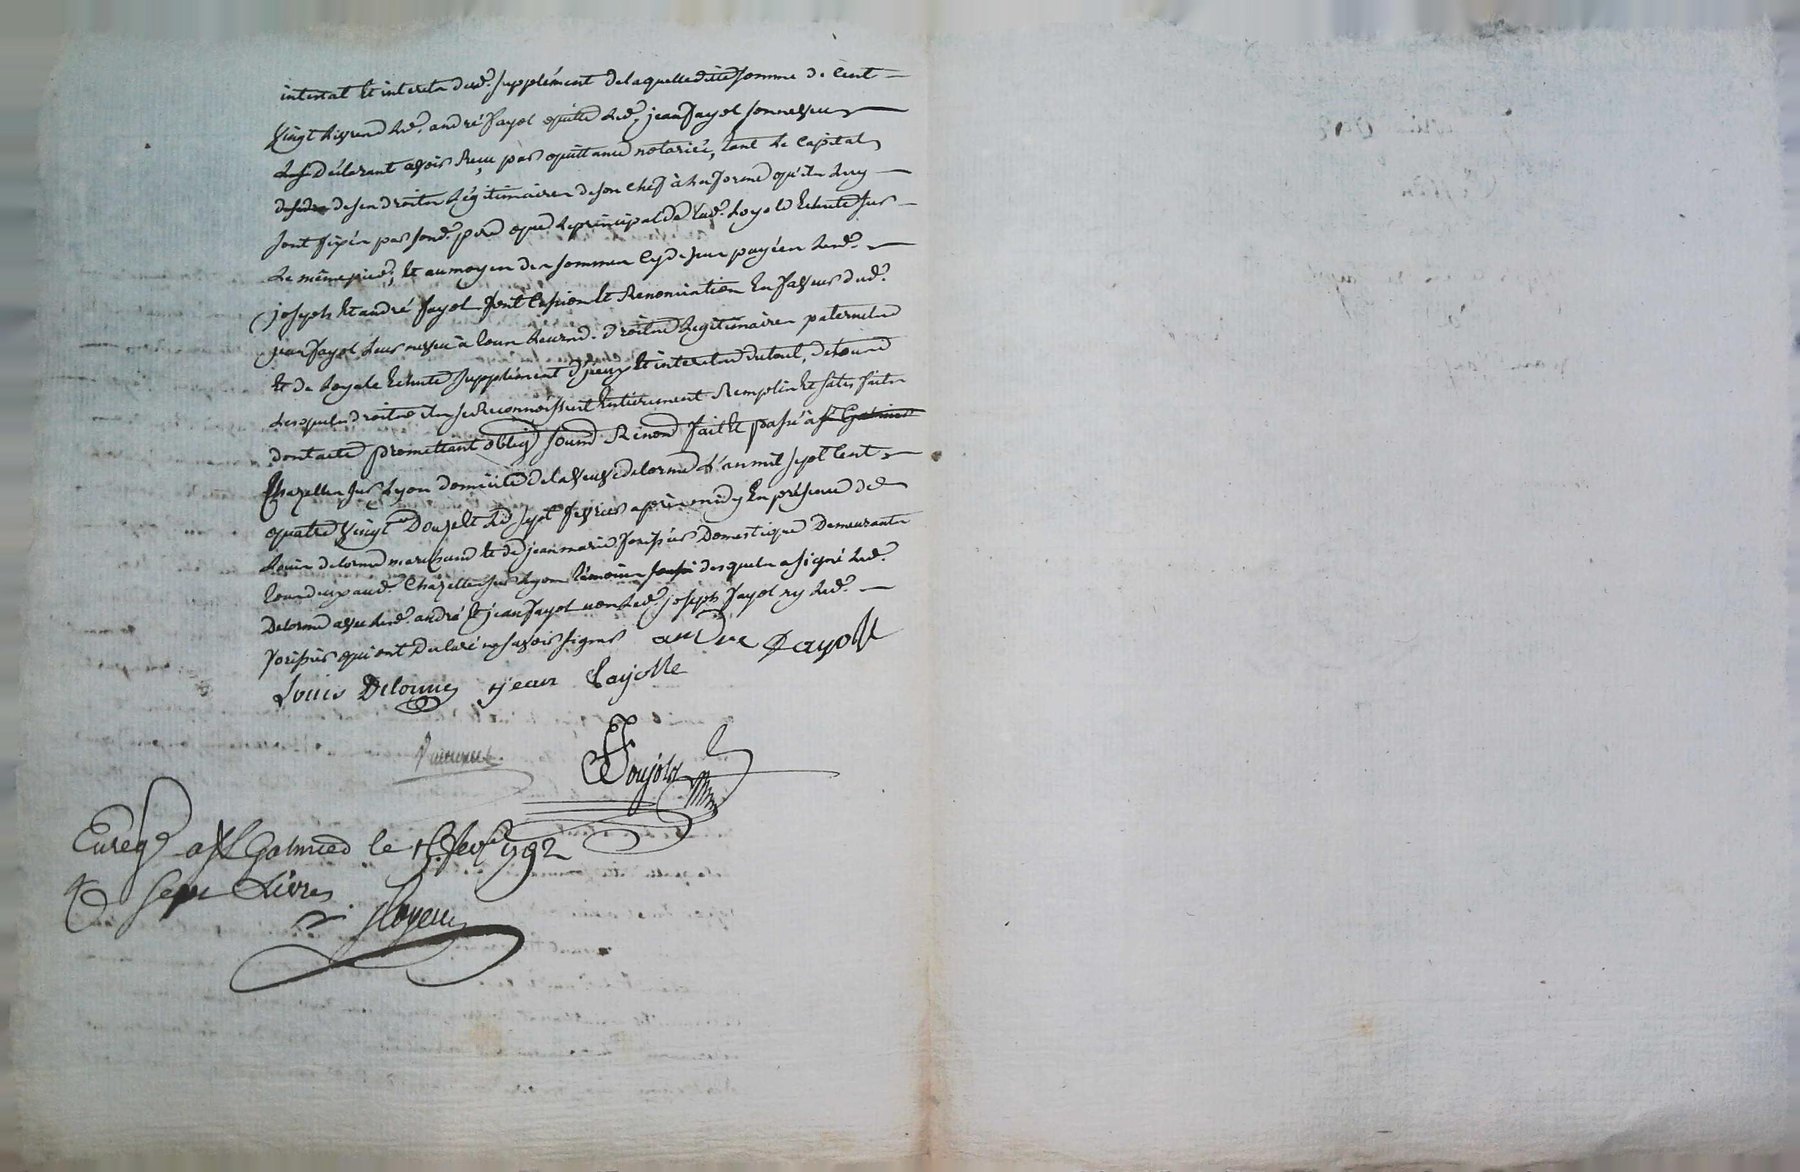 intestat et interets dud. supplément de laquelle dite somme de cent
vingt livres led. andré fayol quitte led. jean fayol son neveu
declarant avoir reçu par quittance notariée, tant le capital
de ses droits légitimaires de son chef à la forme qu'ils luy
sont fixés par sond. père que le principal de lad. loyale echute sur
le même pied, et au moyen des sommes cy dessus payées lesd.
joseph et andré fayol font cession et Renonciation en faveur dud.
jean fayol leur neveu à tous leursd. droits légitimaires paternels
et de loyale echute supplément d'iceux et interets du tout, de tous
lesquels droits ils se Reconnoissent entièrement Remplis et satisfaits
dont acte promettant oblig. soum. Renon. fait et passé à st Galmier
Chazelles sur Lyon domicile de la veuve delorme l'an mil sept cent
quatre vingt Douze et le sept fevrier après midy en présence de
Louis delorme marchand et de jean marie Domestique Demeurants
tous deux aud. Chazelles sur Lyon témoins desquels a signé led.
Delorme avec lesd. andré et jean fayol non led. joseph fayol ny led.
qui ont declaré ne savoir signer andre Fayolle
Louis Delorme jean Fayolle
Enreg. a St Galmier le fevr. 1792
Sept Livres